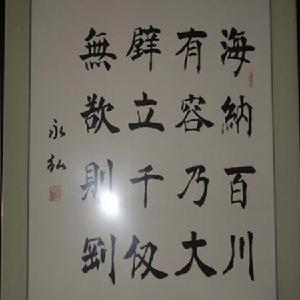 海納百川
有容乃大
壁立千仞
無欲則剛
永弘